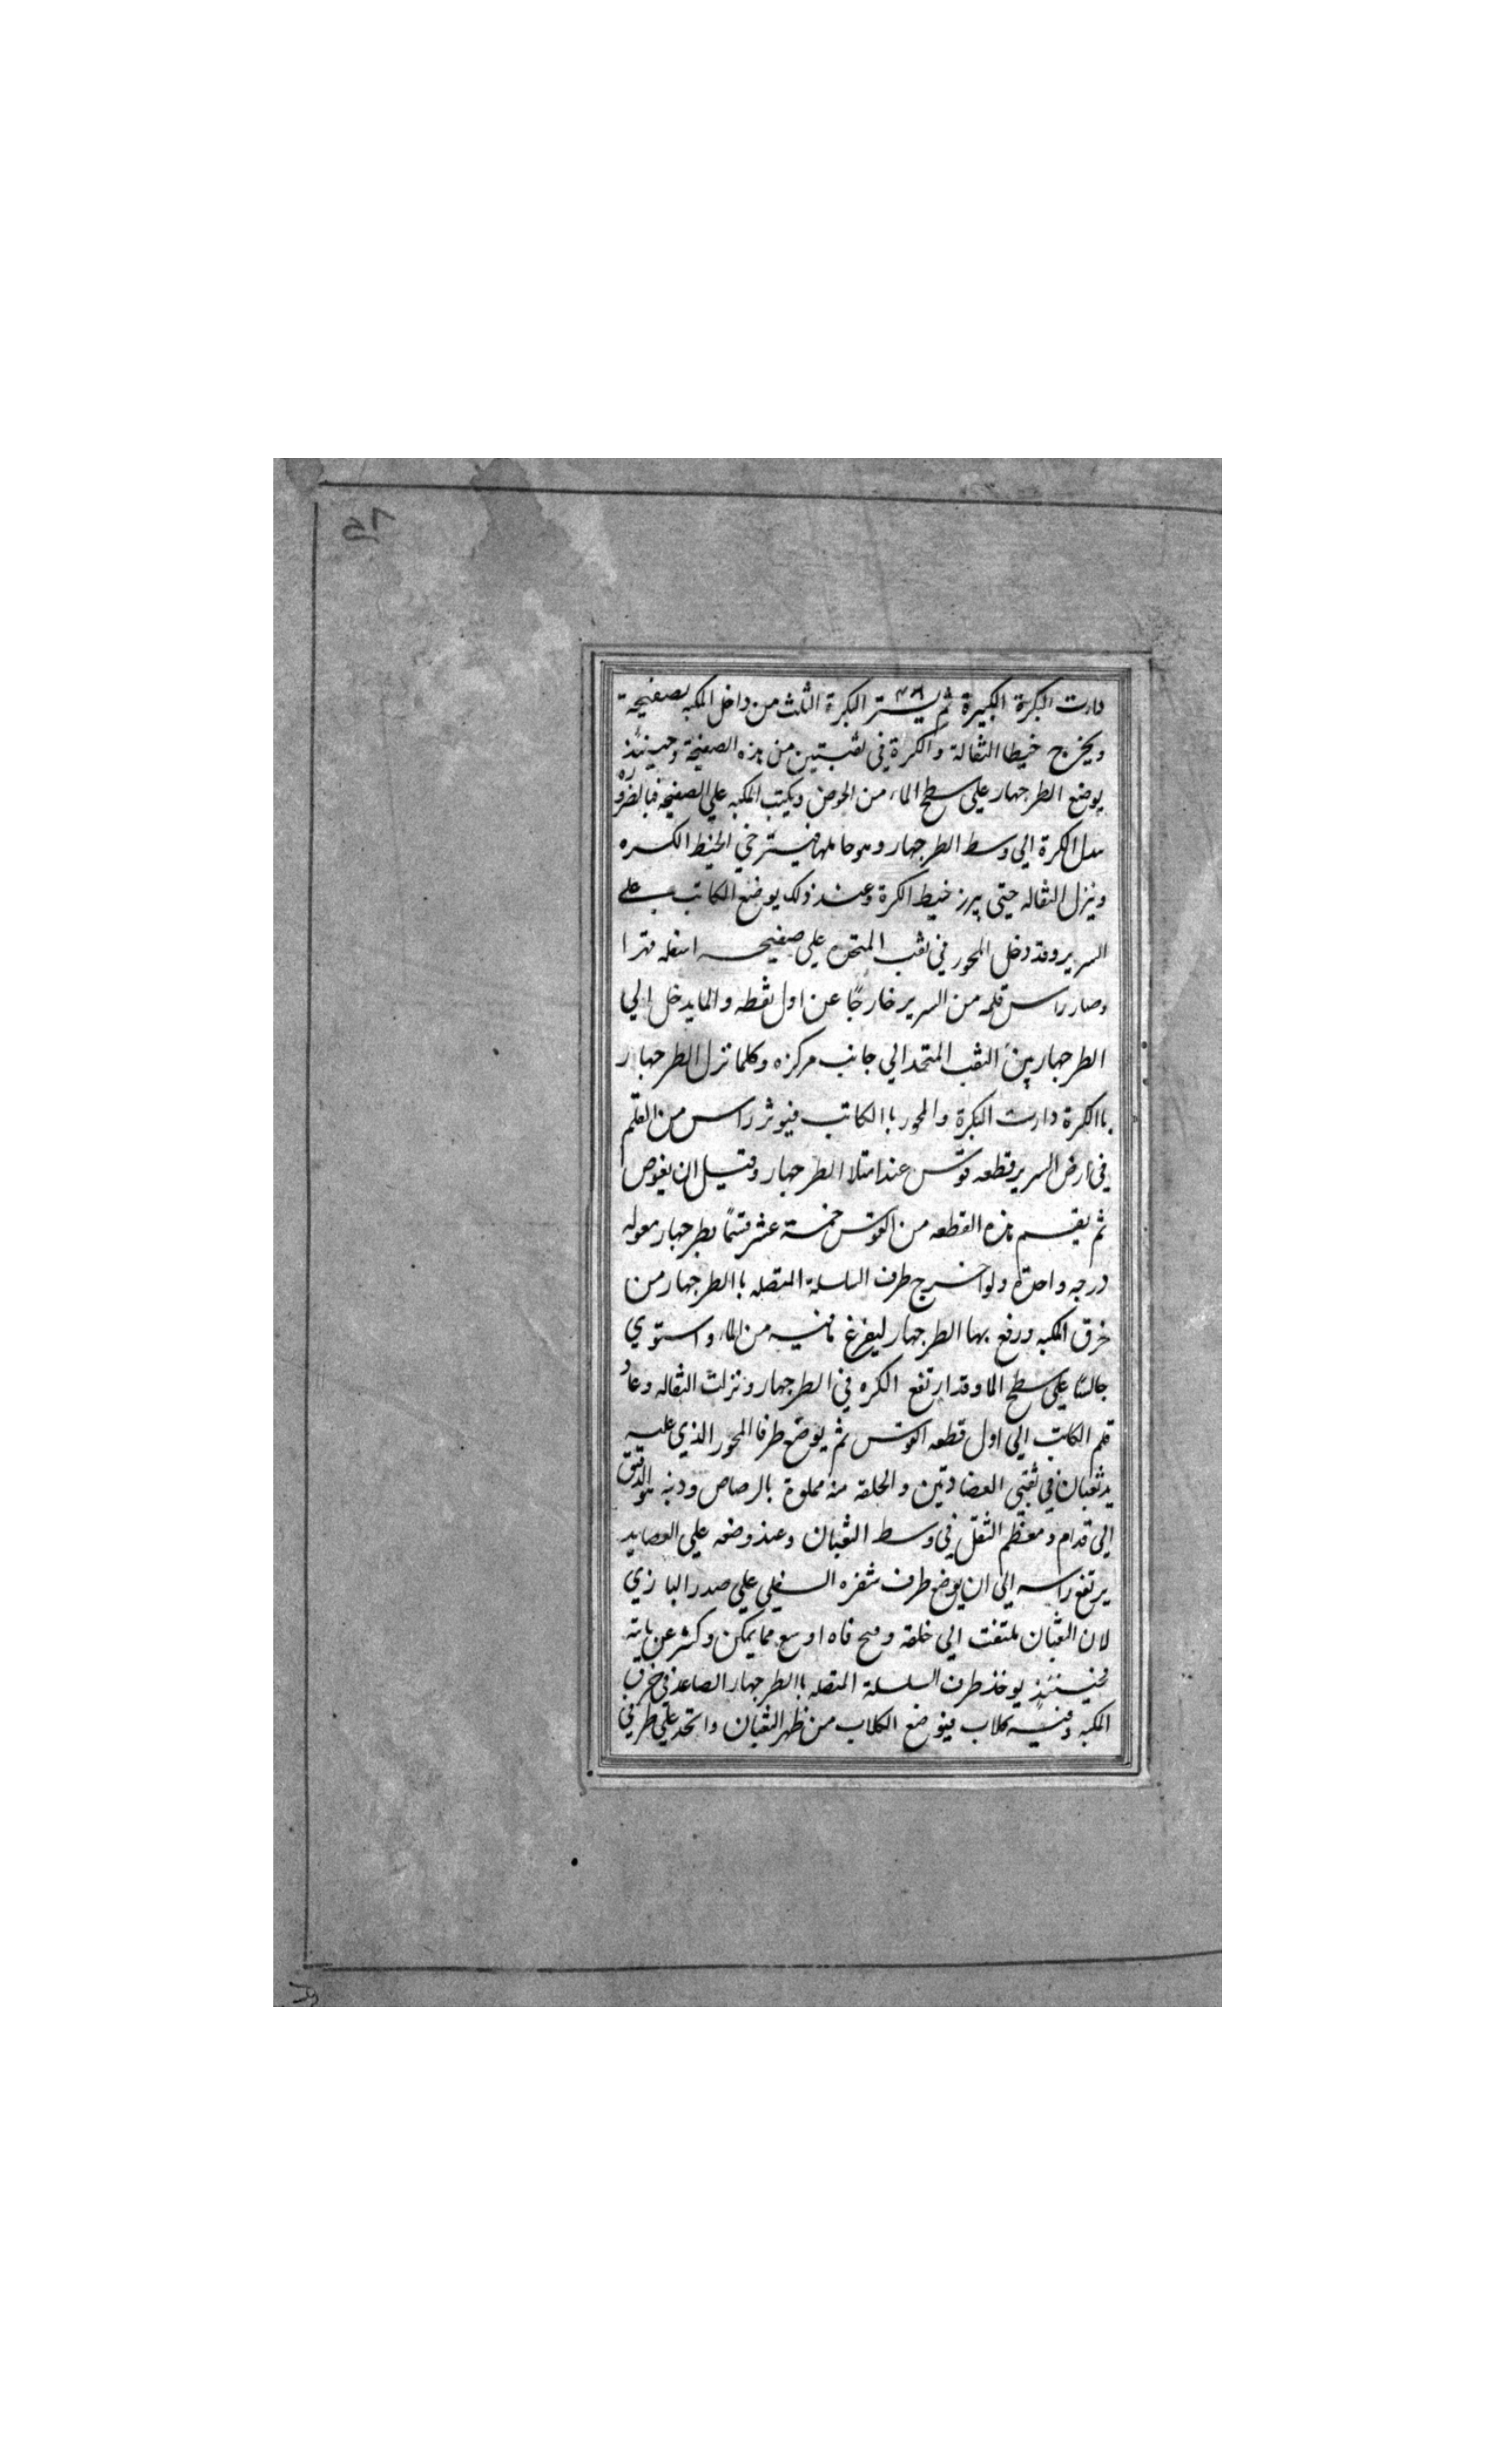 دارت البكرة الكبيرة ثم يستر البكرة الثلث من داخل المكبه بصفيحة
ويخرج خيطا الثقالة والكرة في ثقبتين من هذه الصفيحة وحينئذ
يوضع الطرجهار على سطح الماء من الحوض ويكتب المكبه علي الصفيحه فبالضروره
الكرة الي وسط الطرجهار وهو حاملها فيسترخي الخيط الكره
وينزل الثقاله حتي يبرز خيط الكرة وعند ذلك يوضع الكاتب علے
السرير وقد دخل المحور في ثقب المتحده علي صفيحه اسفله قهرا
وصار راس قلمه من السرير خارجًا عن اول نقطه والما يدخل الي
الطرجهار من الثقب المتحد الي جانب مركزه وكلما نزل الطرجهار
باالكرة دارت البكرة والمحور باالكاتب فيوثر راس من القلم
في ارض السرير قطعه قوس عند امتلا الطرجهار وقبل ان يغوص
ثم يقسم هذه القطعه من القوس خمسة عشر قسمًا بطرجهار معوله
درجه واحدة ولو اخرج طرف السلسلة المتصله باالطرجهار من
خرق المكبه ورفع بها الطرجهار ليفرغ مافيه من الماء واستوي
جالسًا علي سطح الما وقد ارتفع الكره في الطرجهار ونزلت الثقاله وعاد
قلم الكاتب الي اول قطعه القوس ثم يوضع طرفا المحور الذي عليه
يد ثعبان في ثقبي العضادتين والحلقه منه مملوة بالرصاص وذنبه هو الدقيق
الي قدام ومعظم الثقل في وسط الثعبان وعند وضعه علي العضايد
يرتفع راسه الي ان يوضع طرف شفره السفلي علي صدر البازي
لان الثعبان ملتفت الي خلفه وفتح فاه اوسع مما يمكن وكشر عن نابه
فحينئذ يوخذ طرف السلسلة المتصله باالطرجهار الصاعد في خرق
المكبه وفيه كلاب فيوضع الكلاب من ظهر الثعبان واتحد علي طرفي